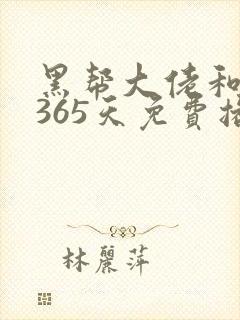 黑帮大佬和
365天免費
林麗萍